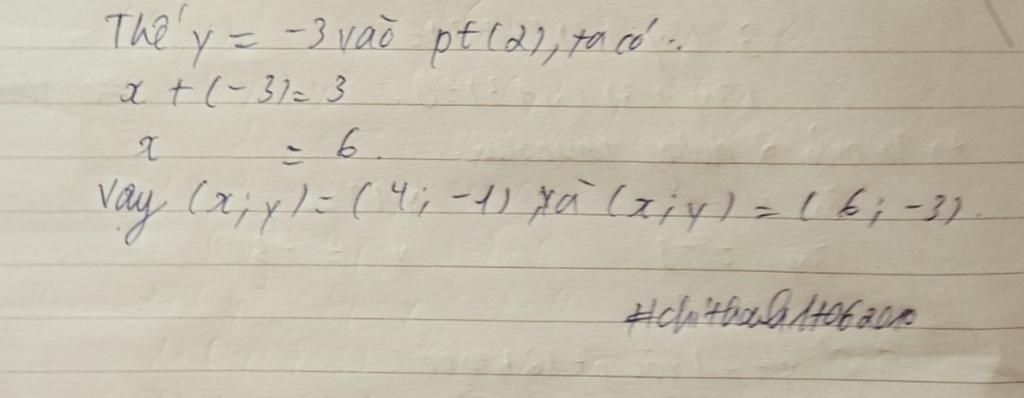 Thế y = -3 vào pt(2), ta có:
x + (-3) = 3
x = 6.
Vậy (x; y) = (4; -1) và (x; y) = (6; -3).